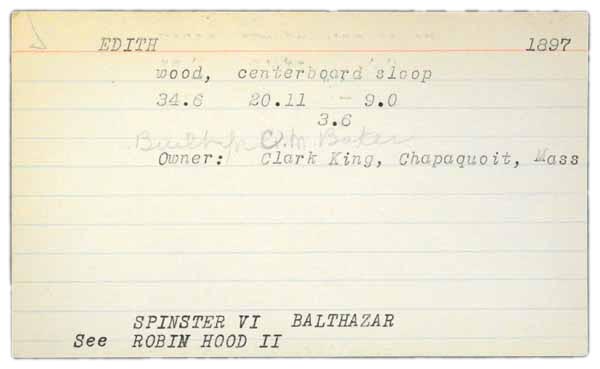 EDITH 1897
wood, centerboard sloop
34.6 20.11 - 9.0
3.6
Built by C.M Baker
Owner: Clark King, Chapaquoit, Mass
SPINSTER VI BALTHAZAR
See ROBIN HOOD II